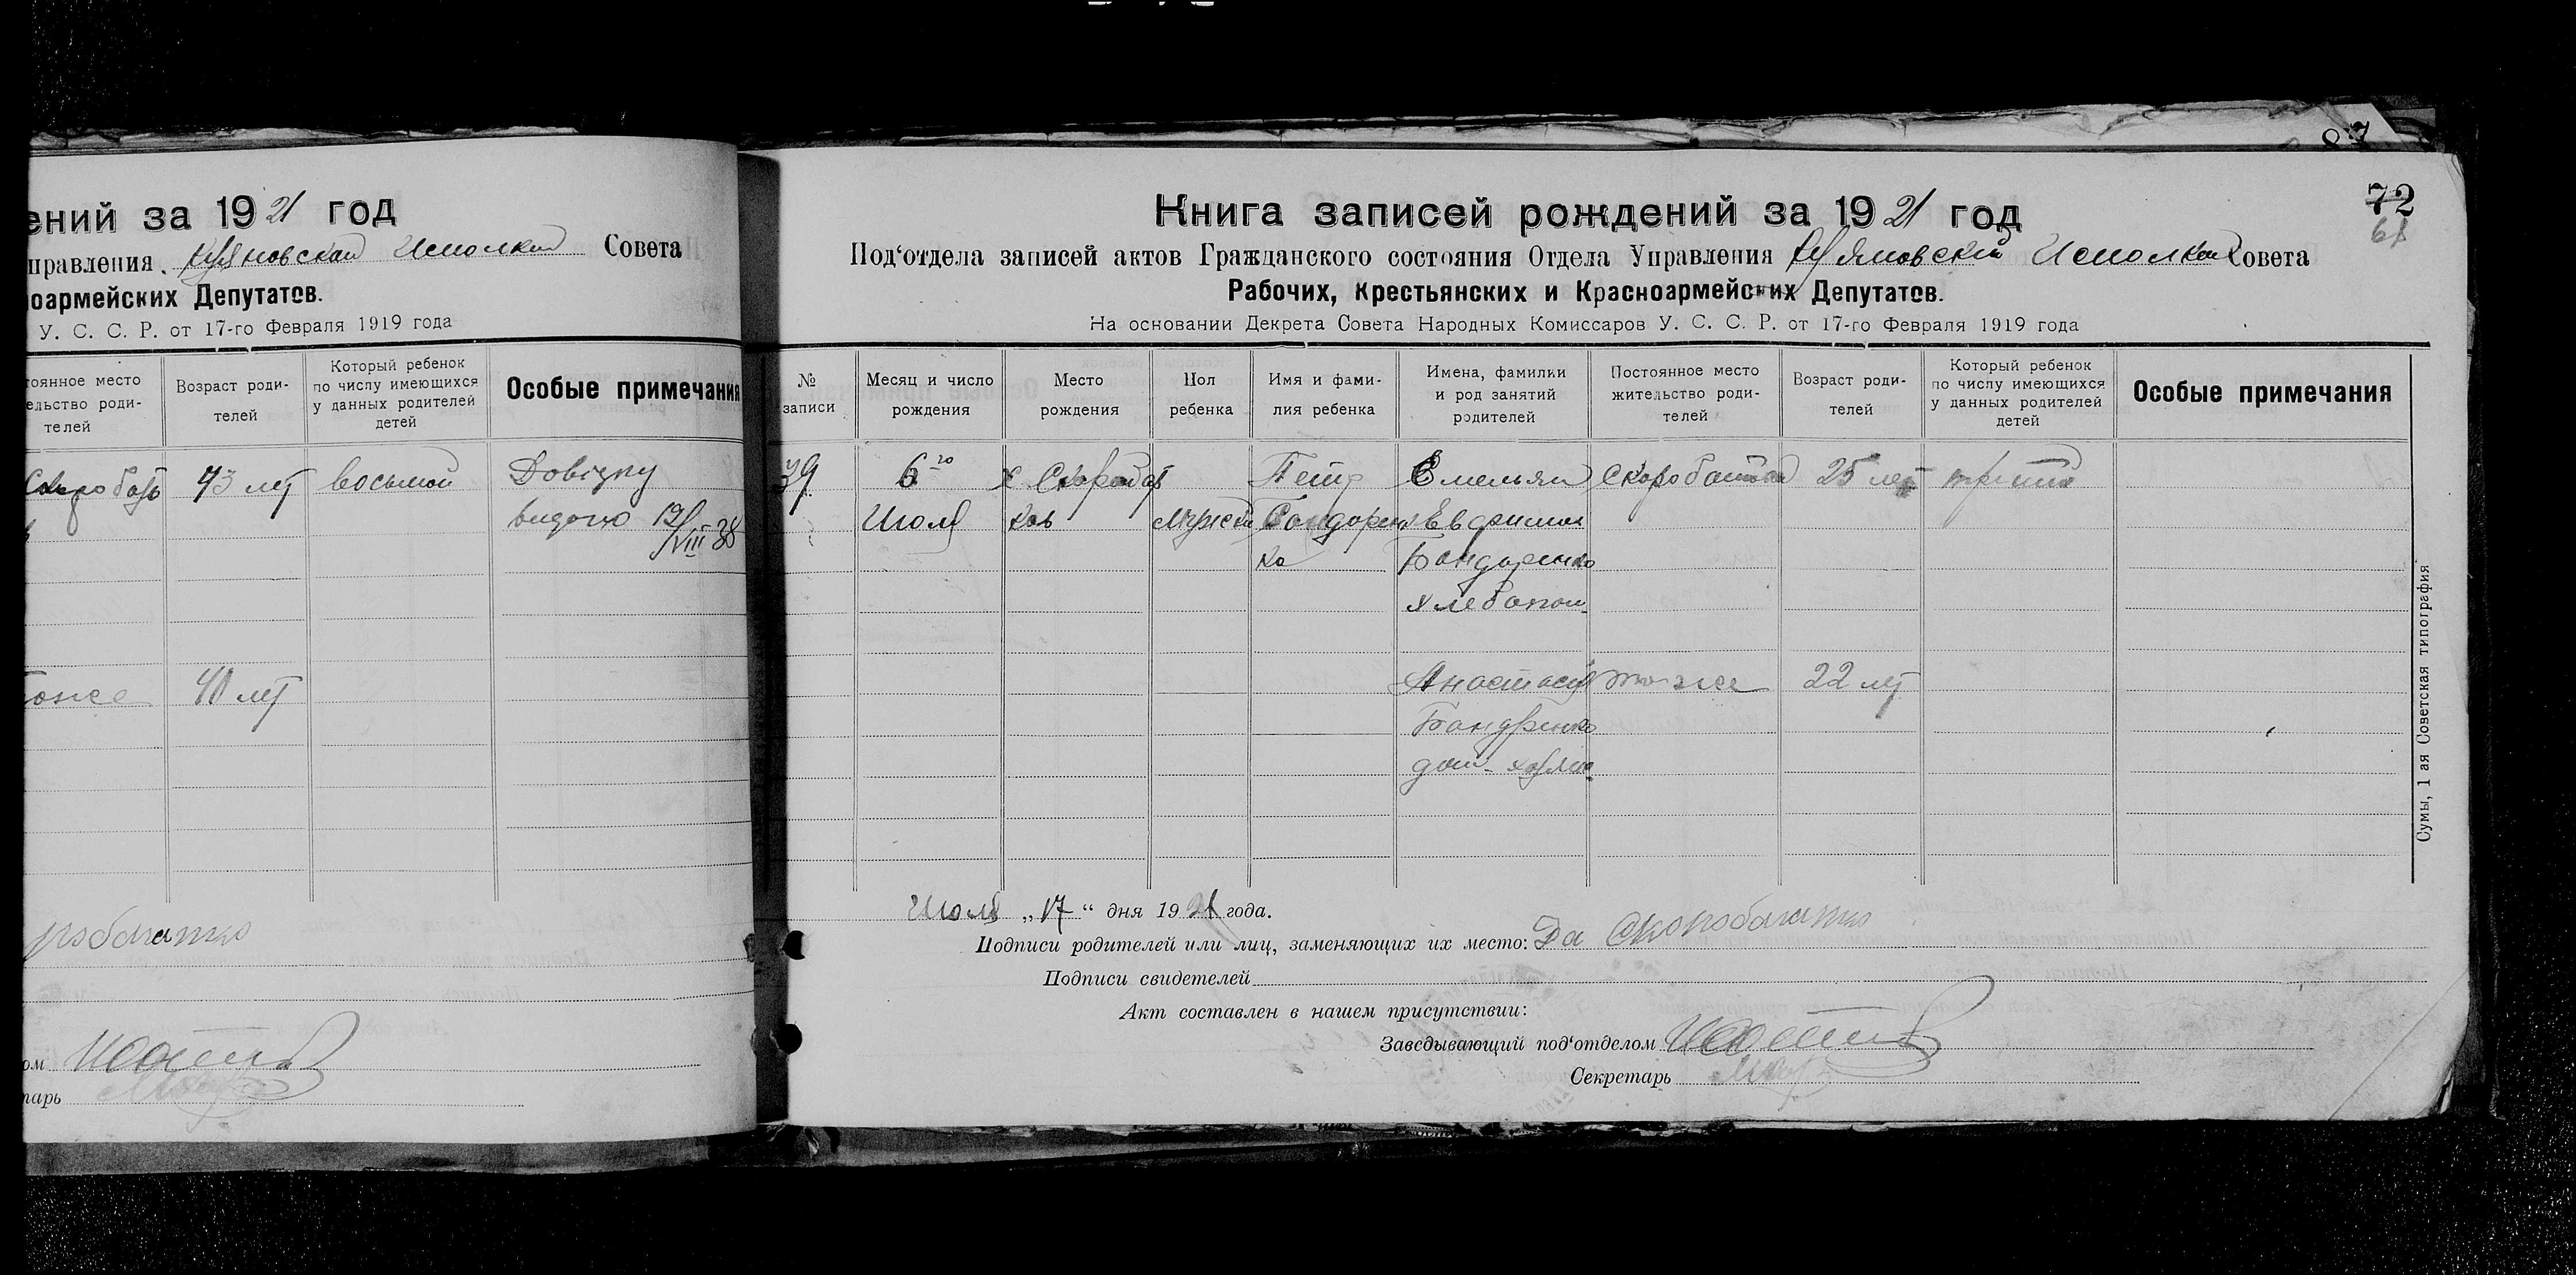 ений за 1921 год
правления Исполком Совета
ноармейских Депутатов.
У. С. С. Р. от 17-го Февраля 1919 года
тоянное место
ельство роди-
телей
Возраст роди-
телей
Который ребенок
по числу имеющихся
у данных родителей
детей
Особые примечания
43 лет восьмой Довідку
видано 19/VIII 38
тоже 40 лет
робагатко
ом
тарь
87
72
68
Книга записей рождений за 1921 год
Под‘отдела записей актов Гражданского состояния Отдела Управления Исполком Совета
Рабочих, Крестьянских и Красноармейских Депутатов.
На основании Декрета Совета Народных Комиссаров У. С. С. Р. от 17-го Февраля 1919 года
№
записи
Месяц и число
рождения
Место
рождения
Пол
ребенка
Имя и фами-
лия ребенка
Имена, фамилии
и род занятий
родителей
Постоянное место
жительство роди-
телей
Возраст роди-
телей
Который ребенок
по числу имеющихся
у данных родителей
детей
Особые примечания
39 6го Петр Емельян 25 лет третий
Июля ков Мужск Бондарен
ко Бондаренко
хлебопаш
Анастасия тоже 22 лет
Бондренко
дом-
Июля „17“ дня 1921 года.
Подписи родителей или лиц, заменяющих их место: Да Скоробагатко
Подписи свидетелей
Акт составлен в нашем присутствии:
Заведывающий под‘отделом
Секретарь
Сумы, 1 ая Советская типография